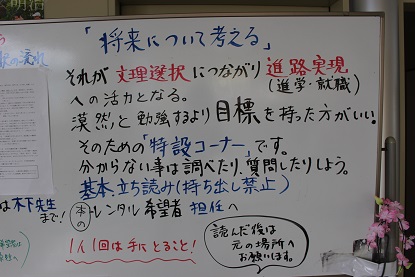 「将来について考える」
それが文理選択につながり進路実現
(進学・就職)
への活力となる。
漠然と勉強するより目標を持った方がいい。
そのための「特設コーナー」です。
分からない事は調べたり、質問したりしよう。
基本、立ち読み(持ち出し禁止)
は木下先生
まで!
本の
レンタル希望者 担任へ
1人1回は手にとること!
読んだ後は
元の場所へ
お願いします。